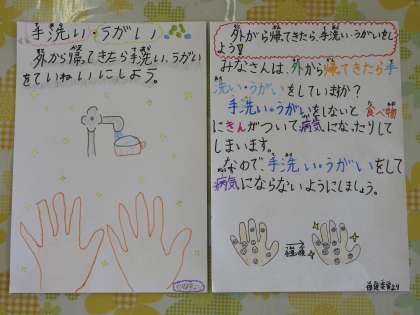 手洗い・うがい
外から帰ってきたら手洗い、うがい
をていねいにしよう。
外から帰ってきたら、手洗い・うがいをし
よう
みなさんは、外から帰ってきたら手
洗い・うがいをしていますか?
手洗い・うがいをしないと食べ物
にきんがついて病気になったりして
しまいます。
なので、手洗い・うがいをして
病気にならないようにしましょう。
保健委員より